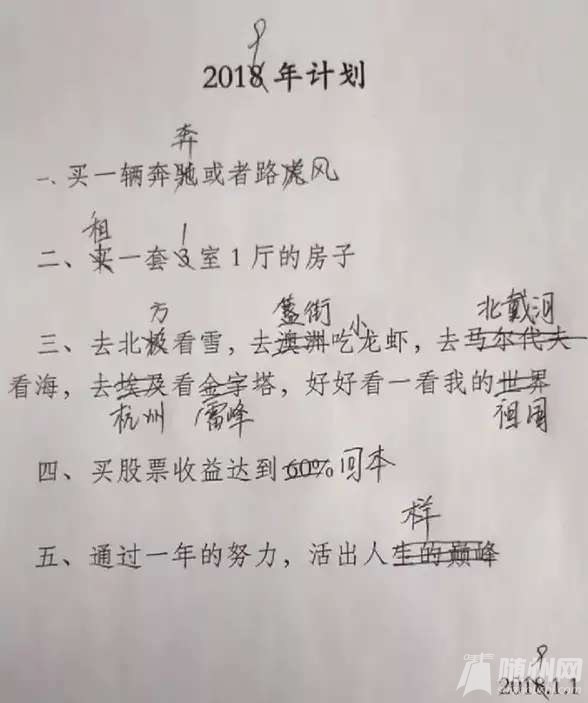 9
2018年计划
奔
一、买一辆奔驰或者路虎风
租 1
二、买一套3室1厅的房子
方 簋街 小 北戴河
三、去北极看雪，去澳洲吃龙虾，去马尔代夫
看海，去埃及看金字塔，好好看一看我的世界
杭州 雷峰 祖国
四、买股票收益达到60%回本
样
五、通过一年的努力，活出人生的巅峰
9
2018.1.1
随州网